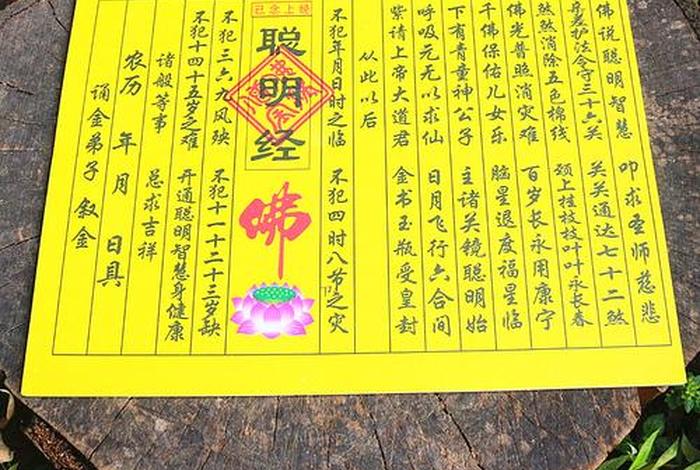 佛说聪明智慧 叩求圣师慈悲
差护法令守三十六关 关关通达七十二煞
煞煞消除五色棉线 颈上挂枝枝叶叶永长春
佛光普照消灾难 百岁长永用康宁
千佛保佑儿女乐 脑星退度福星临
下有青童神公子 主诸关镜聪明始
呼吸元无以求仙 日月飞行六合间
紫请上帝大道君 金书玉瓶受皇封
从此以后
不犯年月日时之临 不犯四时八节之灾
已念上榜
聪明经
佛
不犯三六九风殃 不犯十一十二十三岁缺
不犯十四十五岁之难 开通聪明智慧身健康
诸般等事 总求吉祥
农历 年 月 日具
诵金弟子 叙金